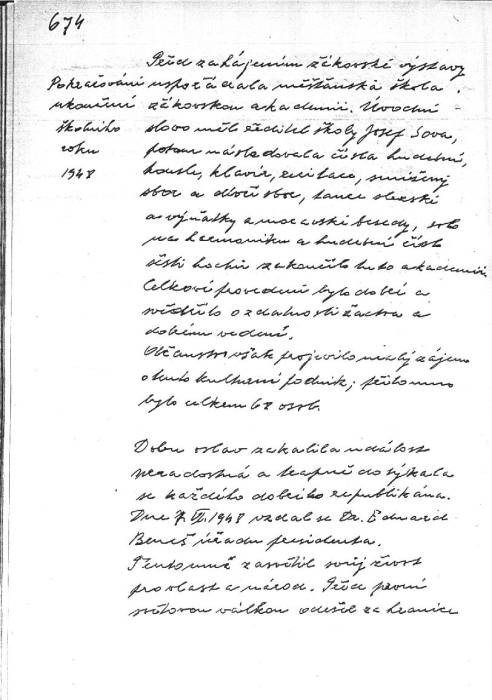 674
Před zahájením žákovské výstavy
Pokračování uspořádala měšťanská škola
ukončení žákovskou akademii. Úvodní
školního slovo měl ředitel školy Josef Sova,
roku potom následovala čísla hudební,
1948 housle, klavír, recitace, smíšený
sbor a dívčí sbor, tance slezské
a výňatky a moravské besedy, solo
na harmoniku a hudební číslo
šesti hochů zakončilo tuto akademii.
Celkové provedení bylo dobré a
svědčilo o zdatnosti žactva a
dobrém vedení.
Občanstvo však projevilo malý zájem
o tento kulturní podnik; přítomno
bylo celkem 68 osob.
Dobu oslav zakalila událost
neradostná a trapně dotýkala
se každého dobrého republikána.
Dne 7. VI. 1948 vzdal se Dr. Eduard
Beneš úřadu presidenta.
Tento muž zasvětil svůj život
pro vlast a národ. Před první
světovou válkou odešel za hranice